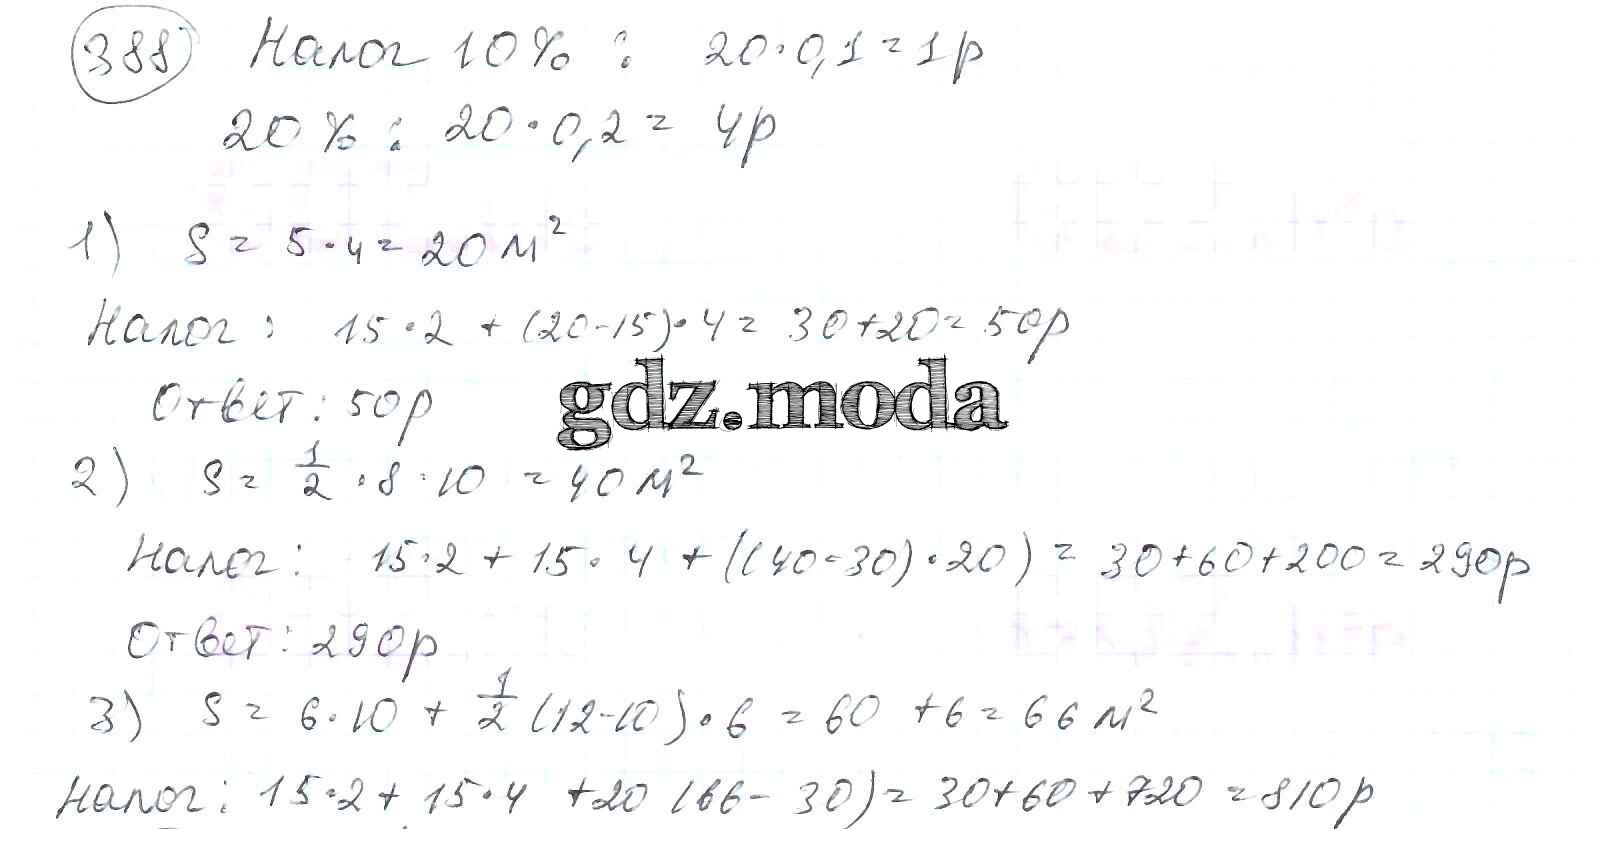 388 Налог 10% : 20·0,1=1р
20% : 20·0,2= 4р
1) S = 5·4=20м²
Налог: 15·2 + (20-15)·4= 30+20=50р
Ответ: 50р
gdz.moda
2) S = 1/2 ·8·10 =40м²
Налог: 15·2 + 15·4 + ((40-30)·20) = 30+60+200=290р
Ответ: 290р
3) S = 6·10 + 1/2 (12-10)·6 = 60 +6=66м²
Налог: 15·2+ 15·4 +20 (66-30)= 30+60+720 =810р